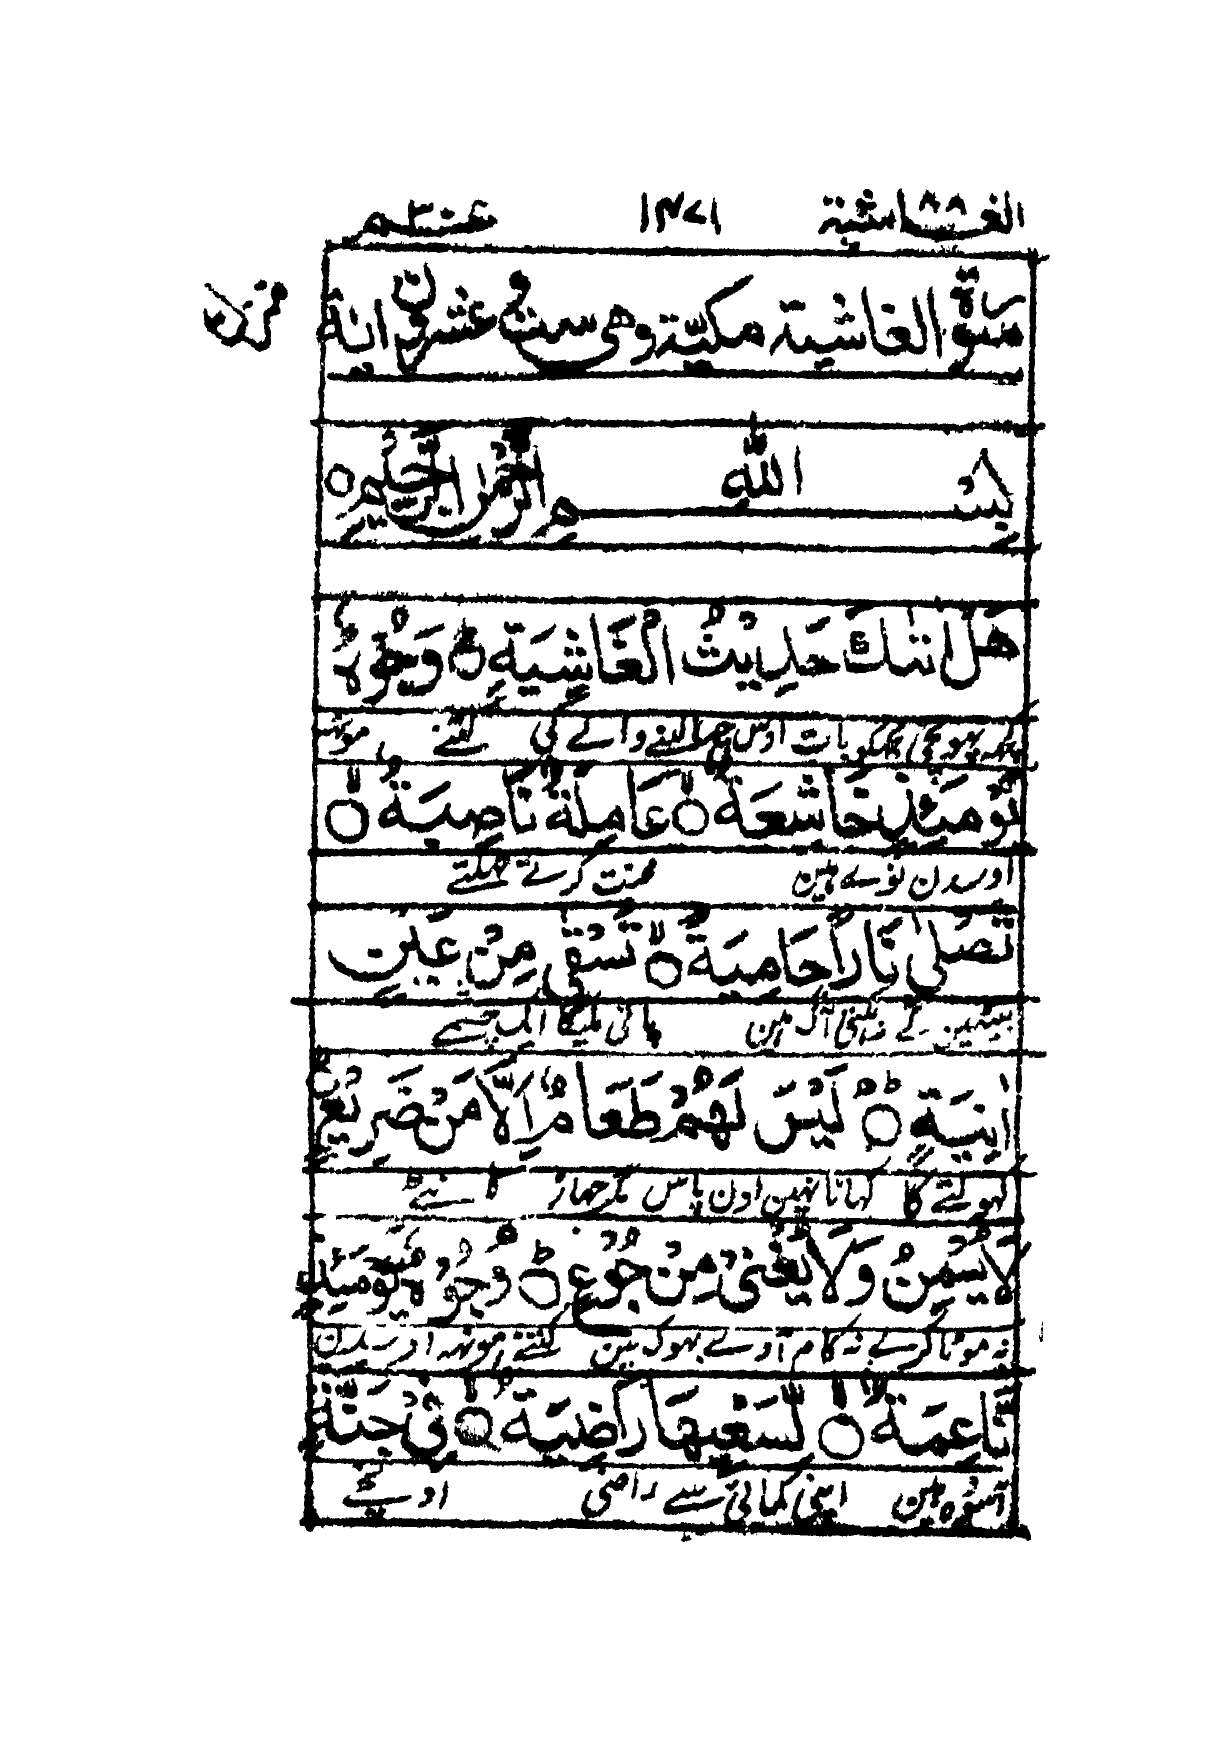 الغاشية ٨٨ ١٤٧١ عمّ ٣٠
سورة الغاشية مكيّة وهي ست و عشرون اية
بِسْمِ اللهِ الرَّحْمٰنِ الرَّحِيْمِ
هَلْ اَتٰىكَ حَدِيْثُ الْغَاشِيَةِ وُجُوْهٌ
بات اوس چھپا لینے والے کی کتنے مونہہ
يَّوْمَئِذٍ خَاشِعَةٌ عَامِلَةٌ نَّاصِبَةٌ
اوسدن نورے ہین محنت کرتے تھکتے
تَصْلٰى نَارًا حَامِيَةً تُسْقٰى مِنْ عَيْنٍ
بیٹھین گے دہکتی آگ مین پانی ملیگا ایک چشمے
اٰنِيَةٍ لَيْسَ لَهُمْ طَعَامٌ اِلَّا مِنْ ضَرِيْعٍ
کہولتے کا کہانا نہین اون پاس مگر جھاڑ کانٹے
لَّا يُسْمِنُ وَلَا يُغْنِيْ مِنْ جُوْعٍ وُجُوْهٌ يَّوْمَئِذٍ
نہ موٹا کرے نہ کام آوے بہوک مین کتنے مونہہ اوسدن
نَّاعِمَةٌ لِّسَعْيِهَا رَاضِيَةٌ فِيْ جَنَّةٍ
آسودہ ہین اپنی کمائی سے راضی اونچے